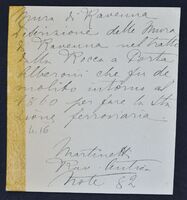 Mura di Ravenna
Definizione delle Mura
di Ravenna nel tratto
della Rocca a Porta
Alberoni che fu de
molito intorno al
1860 per fare la Sta
zione ferroviaria
4.16
Martinetti
Rav. Antica
Note 82